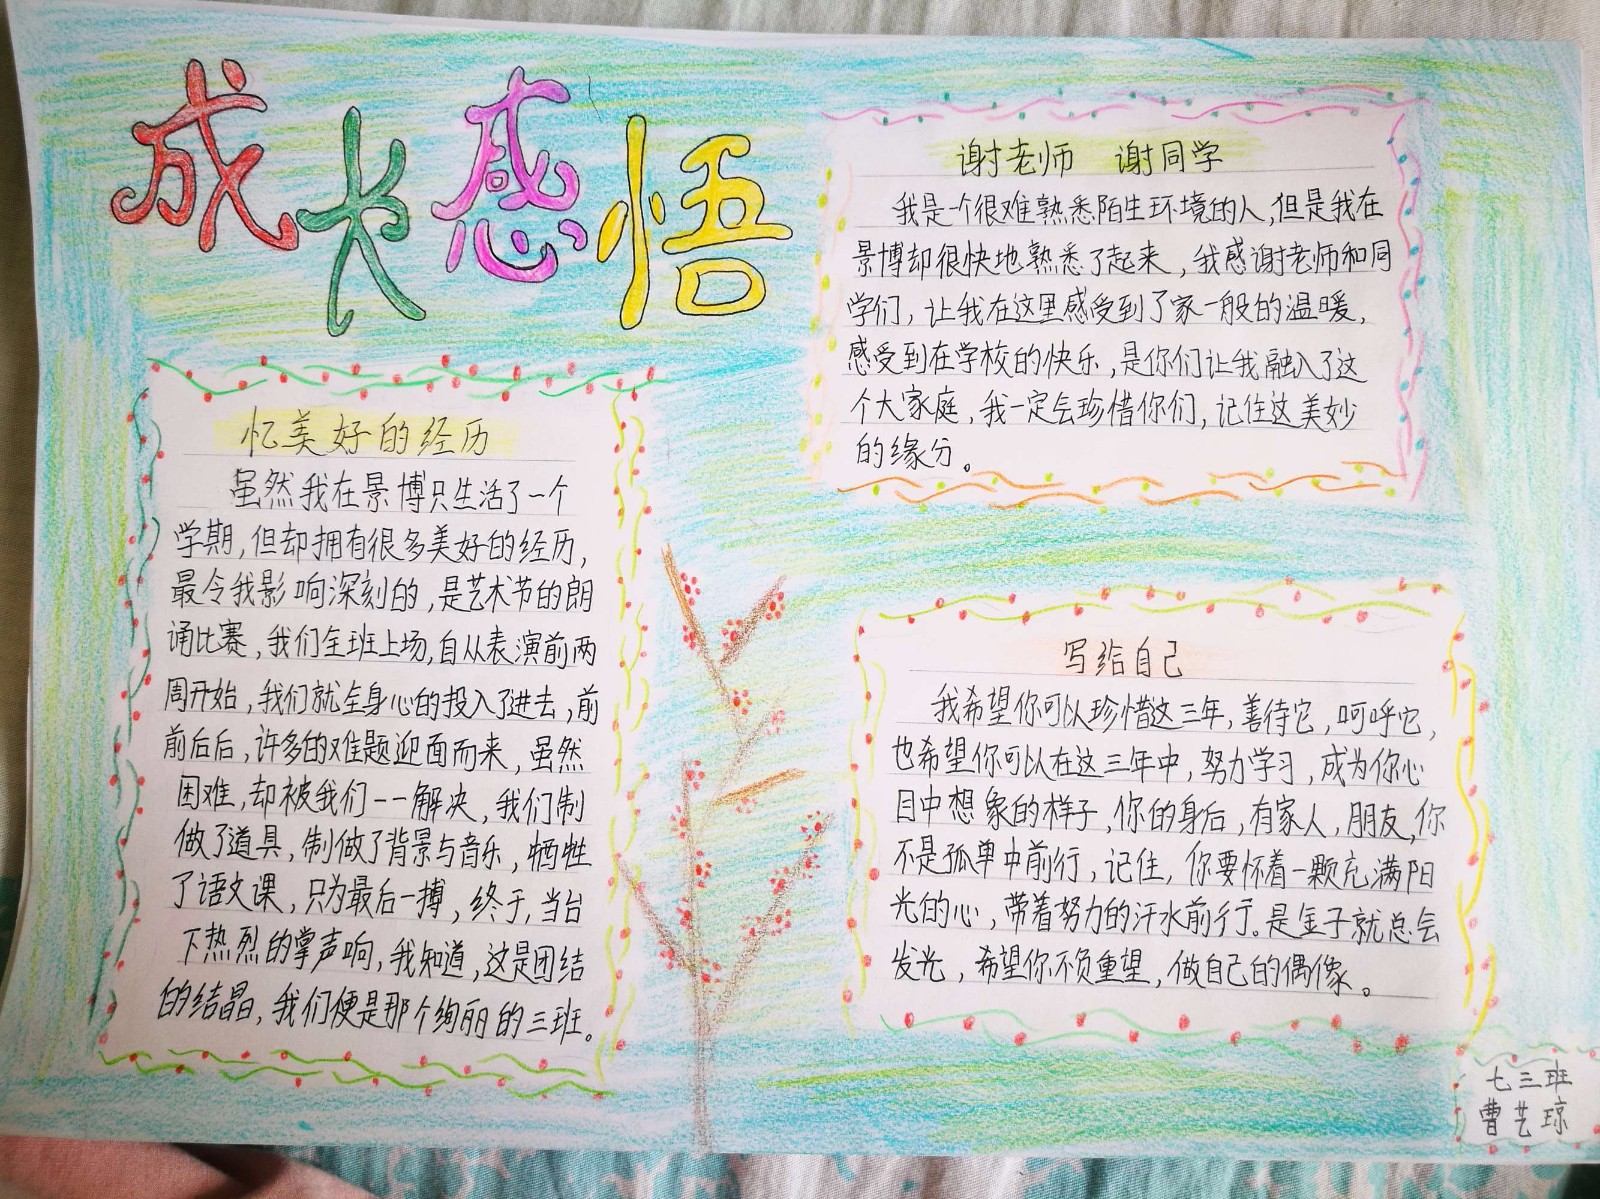 成长感悟
忆美好的经历
虽然我在景博只生活了一个
学期,但却拥有很多美好的经历,
最令我影响深刻的,是艺术节的朗
诵比赛,我们全班上场,自从表演前两
周开始,我们就全身心的投入了进去,前
前后后,许多的难题迎面而来,虽然
困难,却被我们一一解决,我们制
做了道具,制做了背景与音乐,牺牲
了语文课,只为最后一搏,终于,当台
下热烈的掌声响,我知道,这是团结
的结晶,我们便是那个绚丽的三班。
谢老师 谢同学
我是一个很难熟悉陌生环境的人,但是我在
景博却很快地熟悉了起来,我感谢老师和同
学们,让我在这里感受到了家一般的温暖,
感受到在学校的快乐,是你们让我融入了这
个大家庭,我一定会珍惜你们,记住这美妙
的缘分。
写给自己
我希望你可以珍惜这三年,善待它,呵呼它,
也希望你可以在这三年中,努力学习,成为你心
目中想象的样子,你的身后,有家人,朋友,你
不是孤单中前行,记住,你要怀着一颗充满阳
光的心,带着努力的汗水前行。是金子就总会
发光,希望你不负重望,做自己的偶像。
七三班
曹艺琼